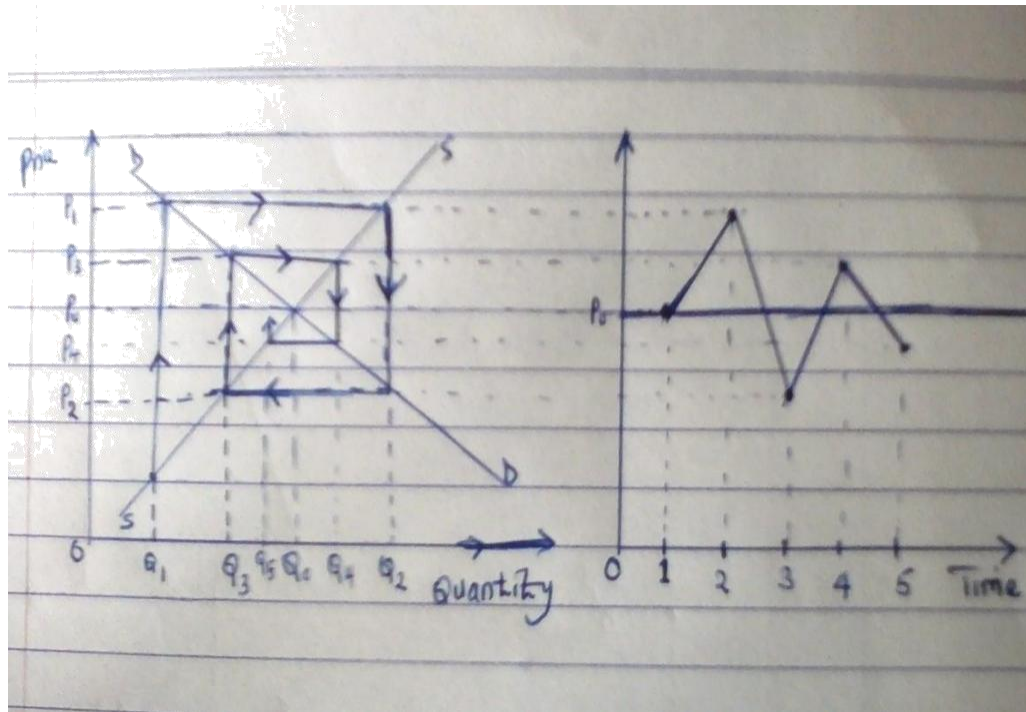 Price
D
S
P₁
P₃
P₀
P₄
P₂
S
D
0
Q₁ Q₃ Q₅ Q₀ Q₄ Q₂
Quantity
P₀
0 1 2 3 4 5 Time